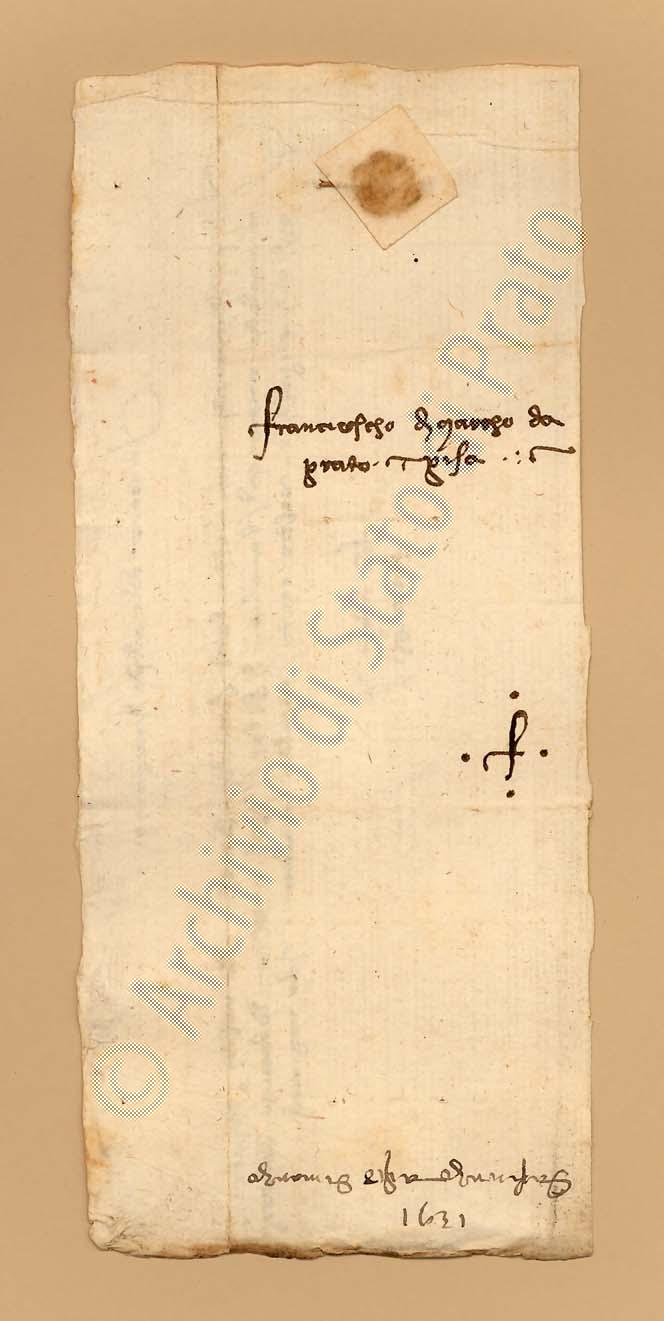 franciescho di marcho da
prato. in pisa
f
1631
© Archivio di Stato di Prato